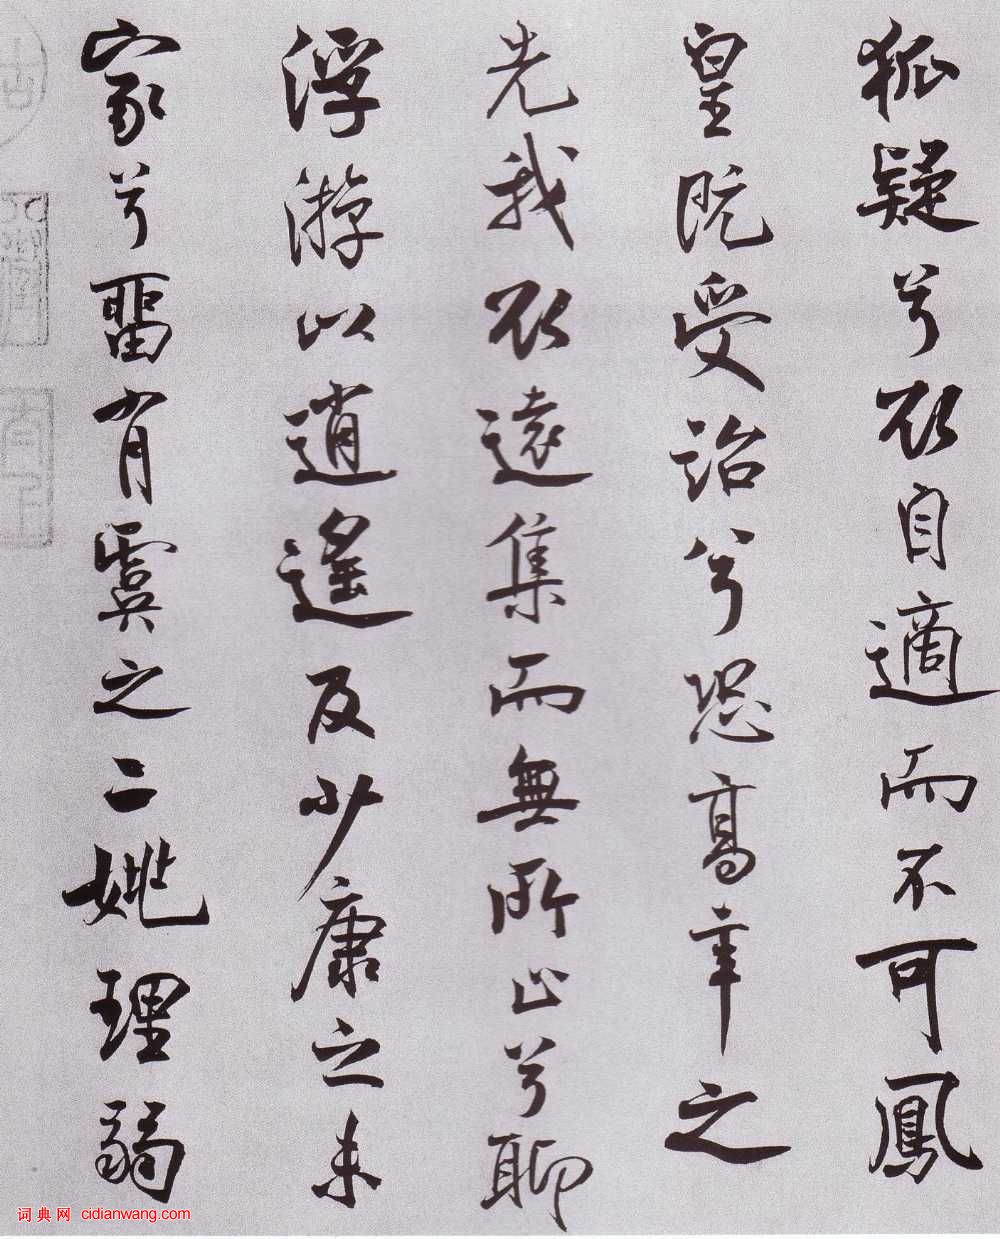 狐疑兮欲自適而不可鳳
皇既受詒兮恐高辛之
先我欲遠集而無所止兮聊
浮游以逍遙及少康之未
家兮留有虞之二姚理弱
词典网 cidianwang.com